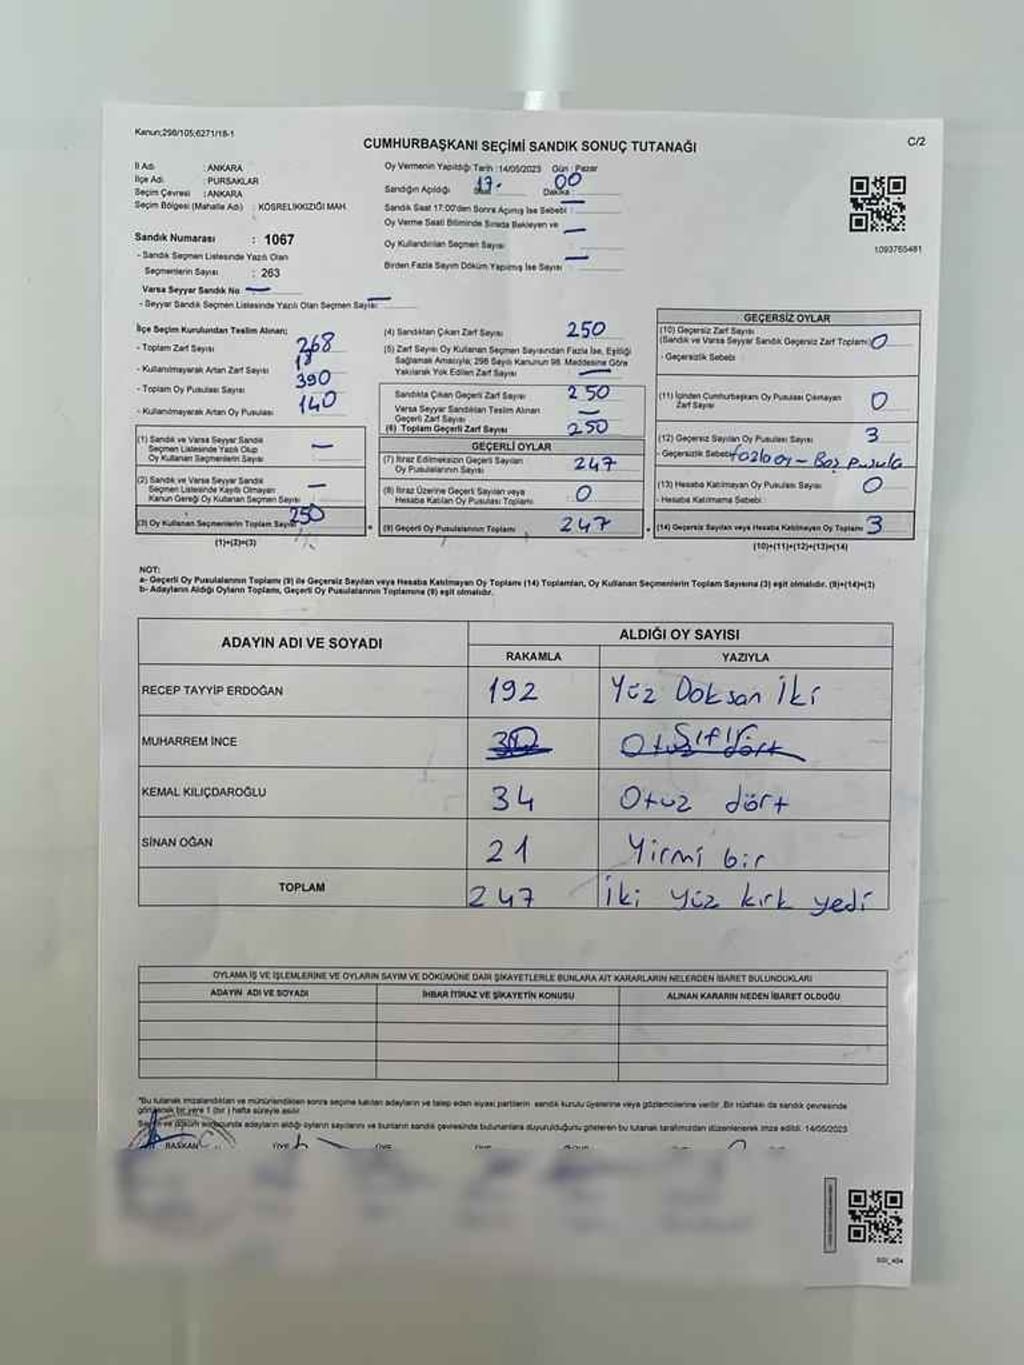 Kanun;298/105;6271/18-1
CUMHURBAŞKANI SEÇİMİ SANDIK SONUÇ TUTANAĞI
C/2
İl Adı : ANKARA
İlçe Adı : PURSAKLAR
Seçim Çevresi : ANKARA
Seçim Bölgesi (Mahalle Adı) : KÖSRELİKKIZIĞI MAH.
Sandık Numarası : 1067
- Sandık Seçmen Listesinde Yazılı Olan
Seçmenlerin Sayısı : 263
Varsa Seyyar Sandık No —
- Seyyar Sandık Seçmen Listesinde Yazılı Olan Seçmen Sayısı —
Oy Vermenin Yapıldığı Tarih : 14/05/2023 Gün : Pazar
Sandığın Açıldığı 17. 00 Dakika
Sandık Saat 17:00'den Sonra Açılmış İse Sebebi : —
Oy Verme Saati Bitiminde Sırada Bekleyen ve
Oy Kullandırılan Seçmen Sayısı : —
Birden Fazla Sayım Döküm Yapılmış İse Sayısı : —
1093765481
İlçe Seçim Kurulundan Teslim Alınan;
- Toplam Zarf Sayısı 268
- Kullanılmayarak Artan Zarf Sayısı 18
- Toplam Oy Pusulası Sayısı 390
- Kullanılmayarak Artan Oy Pusulası 140
(1) Sandık ve Varsa Seyyar Sandık
Seçmen Listesinde Yazılı Olup
Oy Kullanan Seçmenlerin Sayısı —
(2) Sandık ve Varsa Seyyar Sandık
Seçmen Listesinde Kayıtlı Olmayan
Kanun Gereği Oy Kullanan Seçmen Sayısı —
(3) Oy Kullanan Seçmenlerin Toplam Sayısı 250
(1)+(2)=(3)
(4) Sandıktan Çıkan Zarf Sayısı 250
(5) Zarf Sayısı Oy Kullanan Seçmen Sayısından Fazla İse, Eşitliği
Sağlamak Amacıyla; 298 Sayılı Kanunun 98. Maddesine Göre
Yakılarak Yok Edilen Zarf Sayısı —
Sandıkta Çıkan Geçerli Zarf Sayısı 250
Varsa Seyyar Sandıktan Teslim Alınan
Geçerli Zarf Sayısı —
(6) Toplam Geçerli Zarf Sayısı 250
GEÇERLİ OYLAR
(7) İtiraz Edilmeksizin Geçerli Sayılan
Oy Pusulalarının Sayısı 247
(8) İtiraz Üzerine Geçerli Sayılan veya
Hesaba Katılan Oy Pusulası Toplamı 0
(9) Geçerli Oy Pusulalarının Toplamı 247
GEÇERSİZ OYLAR
(10) Geçersiz Zarf Sayısı
(Sandık ve Varsa Seyyar Sandık Geçersiz Zarf Toplamı) 0
- Geçersizlik Sebebi
(11) İçinden Cumhurbaşkanı Oy Pusulası Çıkmayan
Zarf Sayısı 0
(12) Geçersiz Sayılan Oy Pusulası Sayısı 3
- Geçersizlik Sebebi fazla oy - Boş pusula
(13) Hesaba Katılmayan Oy Pusulası Sayısı 0
- Hesaba Katılmama Sebebi
(14) Geçersiz Sayılan veya Hesaba Katılmayan Oy Toplamı 3
(10)+(11)+(12)+(13)=(14)
NOT:
a- Geçerli Oy Pusulalarının Toplamı (9) ile Geçersiz Sayılan veya Hesaba Katılmayan Oy Toplamı (14) Toplamları, Oy Kullanan Seçmenlerin Toplam Sayısına (3) eşit olmalıdır. (9)+(14)=(3)
b- Adayların Aldığı Oyların Toplamı, Geçerli Oy Pusulalarının Toplamına (9) eşit olmalıdır.
ADAYIN ADI VE SOYADI
ALDIĞI OY SAYISI
RAKAMLA YAZIYLA
RECEP TAYYİP ERDOĞAN 192 Yüz Doksan İki
MUHARREM İNCE Sıfır Otuz dört
KEMAL KILIÇDAROĞLU 34 Otuz dört
SİNAN OĞAN 21 Yirmi bir
TOPLAM 247 İki yüz kırk yedi
OYLAMA İŞ VE İŞLEMLERİNE VE OYLARIN SAYIM VE DÖKÜMÜNE DAİR ŞİKAYETLERLE BUNLARA AİT KARARLARIN NELERDEN İBARET BULUNDUKLARI
ADAYIN ADI VE SOYADI İHBAR İTİRAZ VE ŞİKAYETİN KONUSU ALINAN KARARIN NEDEN İBARET OLDUĞU
*Bu tutanak imzalandıktan ve mühürlendikten sonra seçime katılan adayların ve talep eden siyasi partilerin sandık kurulu üyelerine veya gözlemcilerine verilir. Bir nüshası da sandık çevresinde
görülecek bir yere 1 (bir) hafta süreyle asılır.
Seçim ve döküm sonucunda adayların aldığı oyların sayılarını ve bunların sandık çevresinde bulunanlara duyurulduğunu gösteren bu tutanak tarafımızdan düzenlenerek imza edildi. 14/05/2023
BAŞKAN ÜYE ÜYE